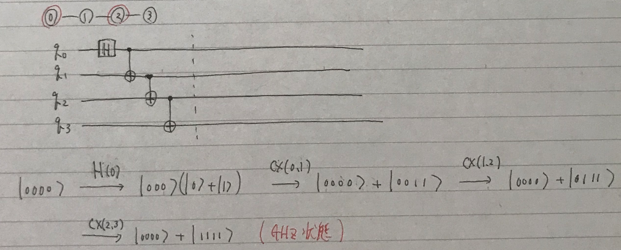 0 1 2 3
q₀ H
q₁
q₂
q₃
|0000⟩ H(0) → |000⟩(|0⟩+|1⟩) CX(0,1) → |0000⟩+|0011⟩ CX(1,2) → |0000⟩+|0111⟩
CX(2,3) → |0000⟩+|1111⟩ (GHZ状態)